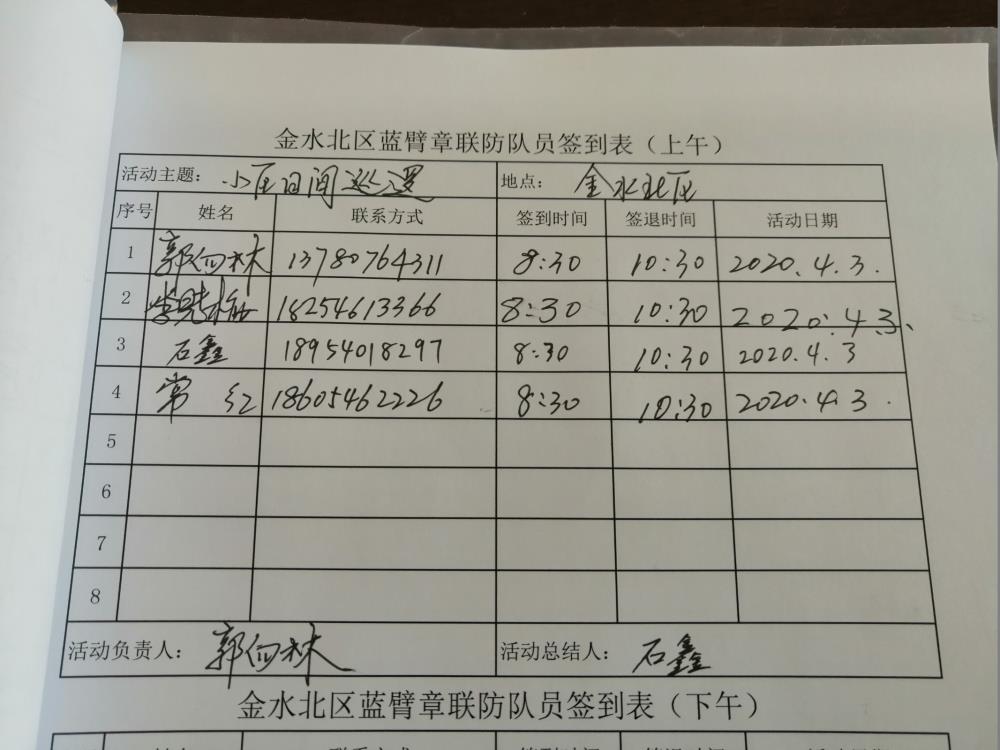 金水北区蓝臂章联防队员签到表（上午）
活动主题： 小区日间巡逻 地点： 金水北区
序号 姓名 联系方式 签到时间 签退时间 活动日期
1 郭向林 13780764311 8:30 10:30 2020.4.3.
2 18254613366 8:30 10:30 2020.4.3.
3 石鑫 18954018297 8:30 10:30 2020.4.3
4 常红 18605462226 8:30 10:30 2020.4.3.
5
6
7
8
活动负责人： 郭向林 活动总结人： 石鑫
金水北区蓝臂章联防队员签到表（下午）